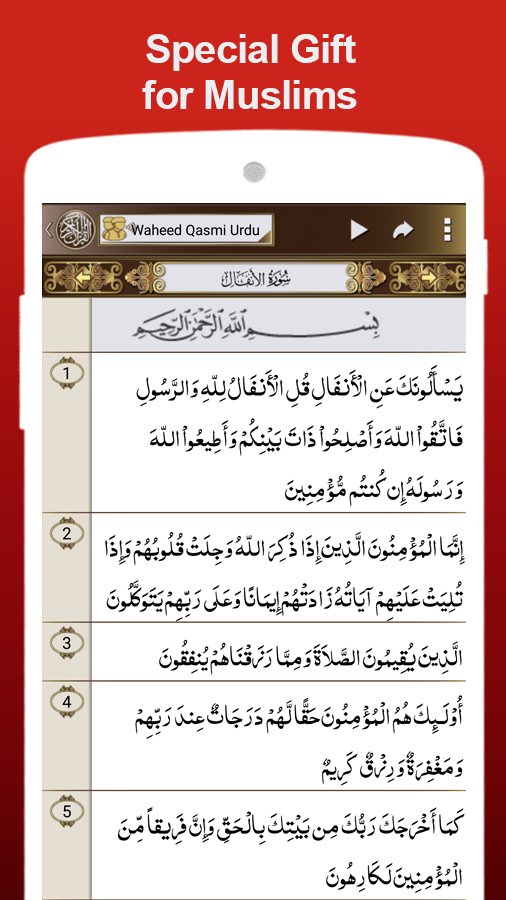 Special Gift
for Muslims
Waheed Qasmi Urdu
سُورَة الأنفَال
بِسْمِ اللَّهِ الرَّحْمَٰنِ الرَّحِيمِ
1
يَسْأَلُونَكَ عَنِ الْأَنفَالِ قُلِ الْأَنفَالُ لِلّهِ وَالرَّسُولِ
فَاتَّقُواْ اللّهَ وَأَصْلِحُواْ ذَاتَ بَيْنِكُمْ وَأَطِيعُواْ اللّهَ
وَرَسُولَهُ إِن كُنتُم مُّؤْمِنِينَ
2
إِنَّمَا الْمُؤْمِنُونَ الَّذِينَ إِذَا ذُكِرَ اللّهُ وَجِلَتْ قُلُوبُهُمْ وَإِذَا
تُلِيَتْ عَلَيْهِمْ آيَاتُهُ زَادَتْهُمْ إِيمَانًا وَعَلَى رَبِّهِمْ يَتَوَكَّلُونَ
3
الَّذِينَ يُقِيمُونَ الصَّلاَةَ وَمِمَّا رَزَقْنَاهُمْ يُنفِقُونَ
4
أُوْلَـئِكَ هُمُ الْمُؤْمِنُونَ حَقًّا لَّهُمْ دَرَجَاتٌ عِندَ رَبِّهِمْ
وَمَغْفِرَةٌ وَرِزْقٌ كَرِيمٌ
5
كَمَا أَخْرَجَكَ رَبُّكَ مِن بَيْتِكَ بِالْحَقِّ وَإِنَّ فَرِيقاً مِّنَ
الْمُؤْمِنِينَ لَكَارِهُونَ